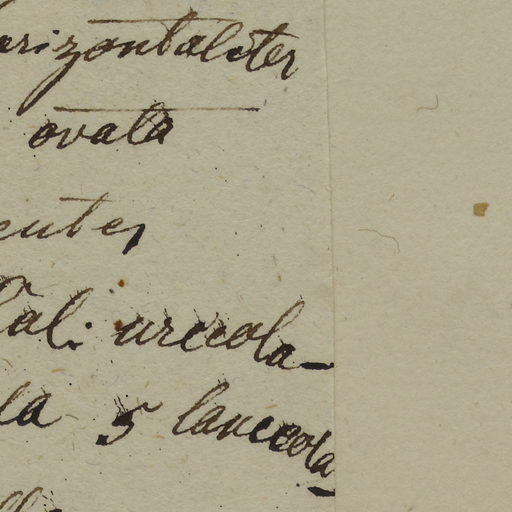 orizontaliter
ovata
entes
Cal: urceola-
la 5 lanceola-